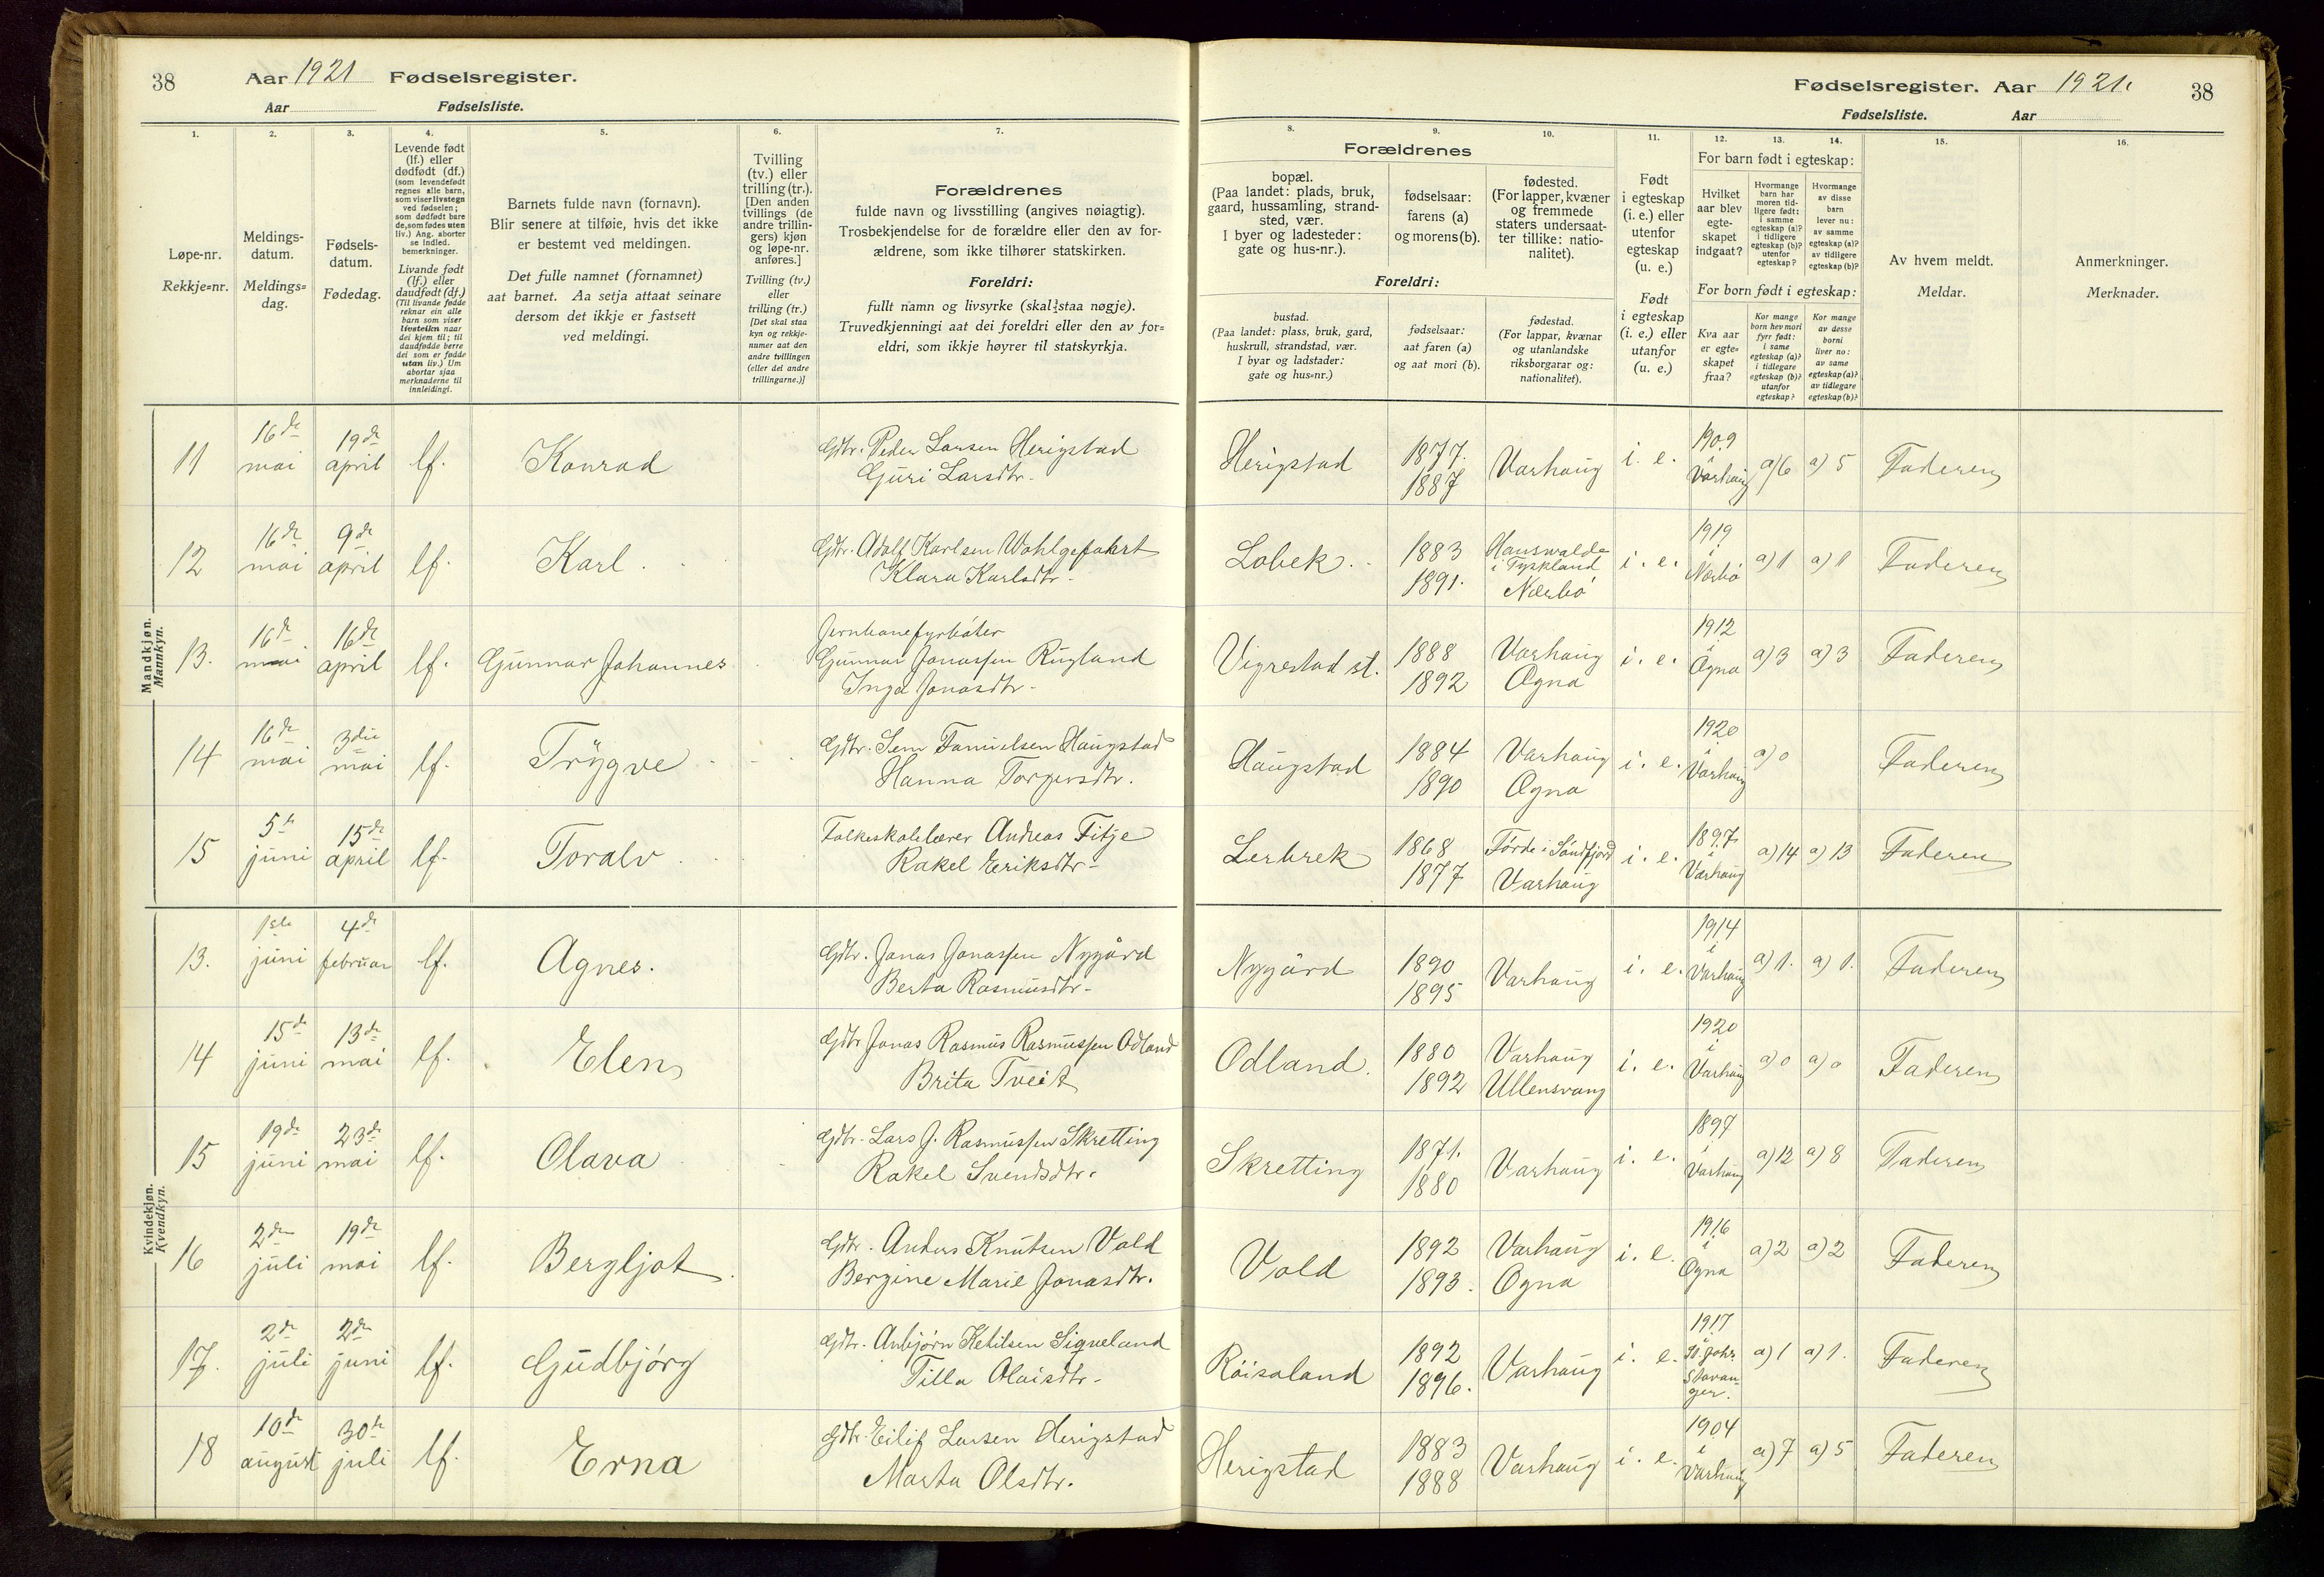 38 Aar 1921 Fødselsregister.
Aar Fødselsliste.
Fødselsregister. Aar 1921. 38
Fødselsliste. Aar
1. 2. 3. 4. 5. 6. 7.
8. 9. 10. 11. 12. 13. 14. 15. 16.
Løpe-nr.
Rekkje=nr.
Meldings-
datum.
Meldings=
dag.
Fødsels-
datum.
Fødedag.
Levende født
(lf.) eller
dødfødt (df.)
(som levendefødt
regnes alle barn,
som viser livstegn
ved fødselen;
som dødfødt bare
de, som fødes uten
liv.) Ang. aborter
se indled.
bemerkninger.
Livande født
(lf.) eller
daudfødt (df.)
(Til livande fødde
reknar ein alle
barn som viser
livsteikn naar
dei kjem til; til
daudfødde berre
dei som er fødde
utan liv.) Um
abortar sjaa
merknaderne til
innleidingi.
Barnets fulde navn (fornavn).
Blir senere at tilføie, hvis det ikke
er bestemt ved meldingen.
Det fulle namnet (fornamnet)
aat barnet. Aa setja attaat seinare
dersom det ikkje er fastsett
ved meldingi.
Tvilling
(tv.) eller
trilling (tr.).
[Den anden
tvillings (de
andre trillin-
gers) kjøn
og løpe-nr.
anføres.]
Tvilling (tv.)
eller
trilling (tr.)
[Det skal staa
kyn og rekkje-
numer aat den
andre tvillingen
(eller dei andre
trillingarne.)]
Forældrenes
fulde navn og livsstilling (angives nøiagtig).
Trosbekjendelse for de forældre eller den av for-
ældrene, som ikke tilhører statskirken.
Foreldri:
fullt namn og livsyrke (skal staa nøgje).
Truvedkjenningi aat dei foreldri eller den av for=
eldri, som ikkje høyrer til statskyrkja.
Forældrenes
bopæl.
(Paa landet: plads, bruk,
gaard, hussamling, strand-
sted, vær.
I byer og ladesteder:
gate og hus-nr.).
fødselsaar:
farens (a)
og morens (b).
fødested.
(For lapper, kvæner
og fremmede
staters undersaat-
ter tillike: natio-
nalitet).
Foreldri:
bustad.
(Paa landet: plass, bruk, gard,
huskrull, strandstad, vær.
I byar og ladstader:
gate og hus=nr.)
fødselsaar:
aat faren (a)
og aat mori (b).
fødestad.
(For lappar, kvænar
og utanlandske
riksborgarar og:
nationalitet).
Født
i egteskap
(i. e.) eller
utenfor
egteskap
(u. e.)
Født
i egteskap
(i. e.) eller
utanfor
(u. e.)
For barn født i egteskap:
Hvilket
aar blev
egte-
skapet
indgaat?
Hvormange
barn har
moren tid-
ligere født:
i samme
egteskap (a)?
i tidligere
egteskap (b)?
utenfor
egteskap?
Hvormange
av disse
barn
lever nu:
av samme
egteskap (a)?
av tidligere
egteskap (b)?
For born født i egteskap:
Kva aar
er egte=
skapet
fraa?
Kor mange
born hev mori
fyrr født:
i same
egteskap (a)?
i tidlegare
egteskap (b)?
utanfor
egteskap?
Kor mange
av desse
borni
liver no:
av same
egteskap (a)?
av tidlegare
egteskap (b)?
Av hvem meldt.
Meldar.
Anmerkninger.
Merknader.
Mandkjøn.
Mannkyn.
11 16de mai 19de april lf. Konrad Gdbr. Peder Larsen Herigstad
Guri Larsdtr. Herigstad 1877. 1887 Varhaug i. e. 1909 i Varhaug a) 6 a) 5 Faderen
12 16de mai 9de april lf. Karl. Gdbr. Adolf Karlsen Wohlgefahrt
Klara Karlsdtr. Lobek. 1883 1891. Hanswalde i Tyskland Nærbö i. e. 1919 i Nærbö a) 1 a) 1 Faderen
13. 16de mai 16de april lf. Gunnar Johannes Jernbanefyrböter
Gunnar Jonassen Rugland
Inga Jonasdtr. Vigrestad st. 1888 1892 Varhaug Ogna i. e. 1912 i Ogna a) 3 a) 3 Faderen
14 16de mai 3die mai lf. Trygve Gdbr. Sem Haugstad
Hanna Torgersdtr. Haugstad 1884 1890 Varhaug Ogna i. e. 1920 i Varhaug a) 0 Faderen
15 5te juni 15de april lf. Toralv Folkeskolelærer Andreas Fitje
Rakel Eriksdtr. Lerbrek 1868 1877 Förde i Söndfjord Varhaug i. e. 1897 i Varhaug a) 14 a) 13 Faderen
Kvindekjøn.
Kvendkyn.
13. 1ste juni 4de februar lf. Agnes. Gdbr. Jonas Jonassen Nygård
Berta Rasmusdtr. Nygård 1890 1895 Varhaug i. e. 1914 i Varhaug a) 1. a) 1. Faderen
14 15de juni 13de mai lf. Elen Gdbr Jonas Rasmus Rasmussen Odland
Brita Tveit Odland. 1880 1892 Varhaug Ullensvang i. e. 1920 i Varhaug a) 0 a) 0 Faderen
15 19de juni 23de mai lf. Olava Gdbr. Lars J. Rasmussen Skretting
Rakel Svendsdtr. Skretting 1871. 1880 Varhaug i. e. 1897 i Varhaug a) 12 a) 8 Faderen
16 2den juli 19de mai lf. Bergljot Gdbr. Anders Knutsen Vold
Bergine Marie Jonasdtr. Vold 1892 1893. Varhaug Ogna i. e. 1916 i Ogna a) 2 a) 2 Faderen
17. 2den juli 2den juni lf. Gudbjörg Gdbr. Anbjörn Ketilsen Sigveland
Tilla Olaisdtr. Röisaland 1892 1896. Varhaug i. e. 1917 i St. Joh. Stavan- ger. a) 1 a) 1. Faderen
18 10de august 30te juli lf. Erna Gdbr. Eilif Larsen Herigstad
Marta Olsdtr. Herigstad 1883 1888 Varhaug i. e. 1904 i Varhaug a) 7 a) 5 Faderen